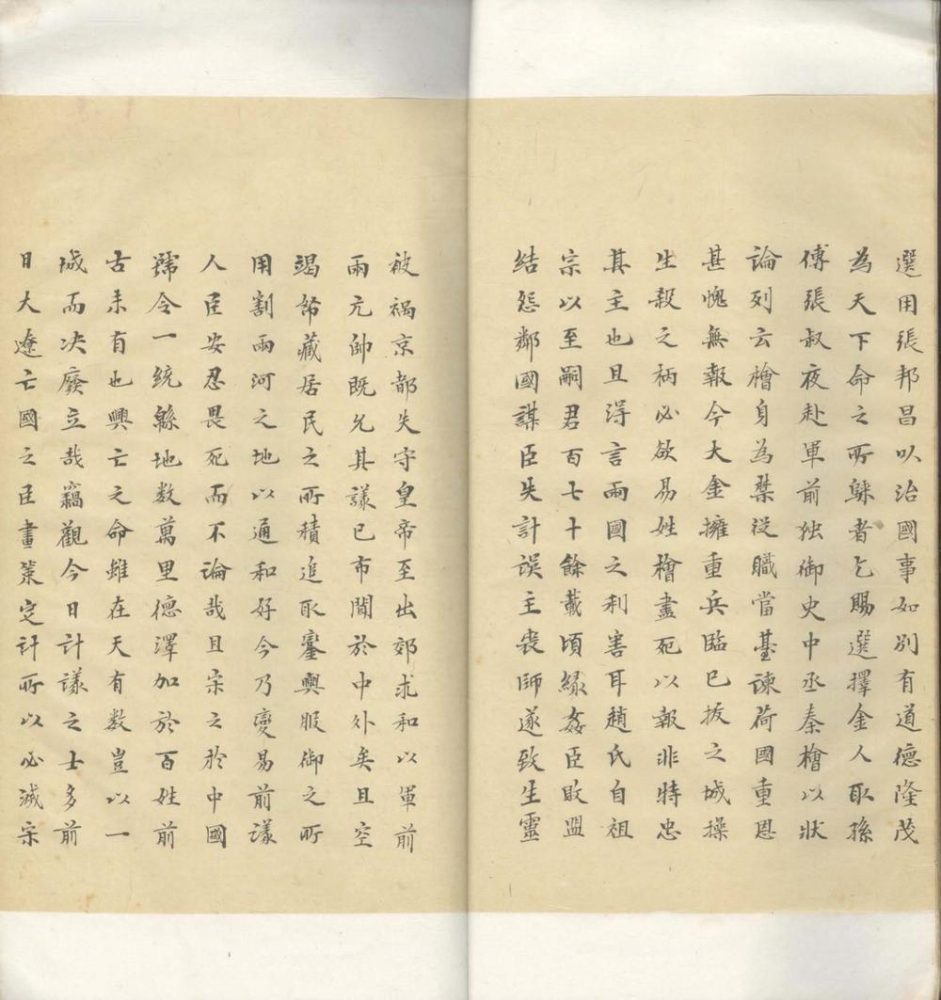 選用張邦昌以治國事如別有道德隆茂
為天下命之所歸者乞賜選擇金人取孫
傅張叔夜赴軍前独御史中丞秦檜以狀
論列云檜身為禁從職當臺諫荷國重恩
甚愧無報今大金擁重兵臨已拔之城操
生殺之柄必欲易姓檜盡死以報非特忠
其主也且淂言兩國之利害耳趙氏自祖
宗以至嗣君百七十餘載頃緣姦臣敗盟
結怨鄰國謀臣失計誤主喪師遂致生靈
被禍京都失守皇帝至出郊求和以軍前
兩元帥既允其議已布聞於中外矣且空
竭帑藏居民之所積追取鑾輿服御之所
用割兩河之地以通和好今乃變易前議
人臣安忍畏死而不論哉且宋之於中國
號令一統緜地数萬里德澤加於百姓前
古未有也興亡之命雖在天有數豈以一
城而决廢立哉竊觀今日計議之士多前
日大遼亡國之臣畫策定計所以必滅宗